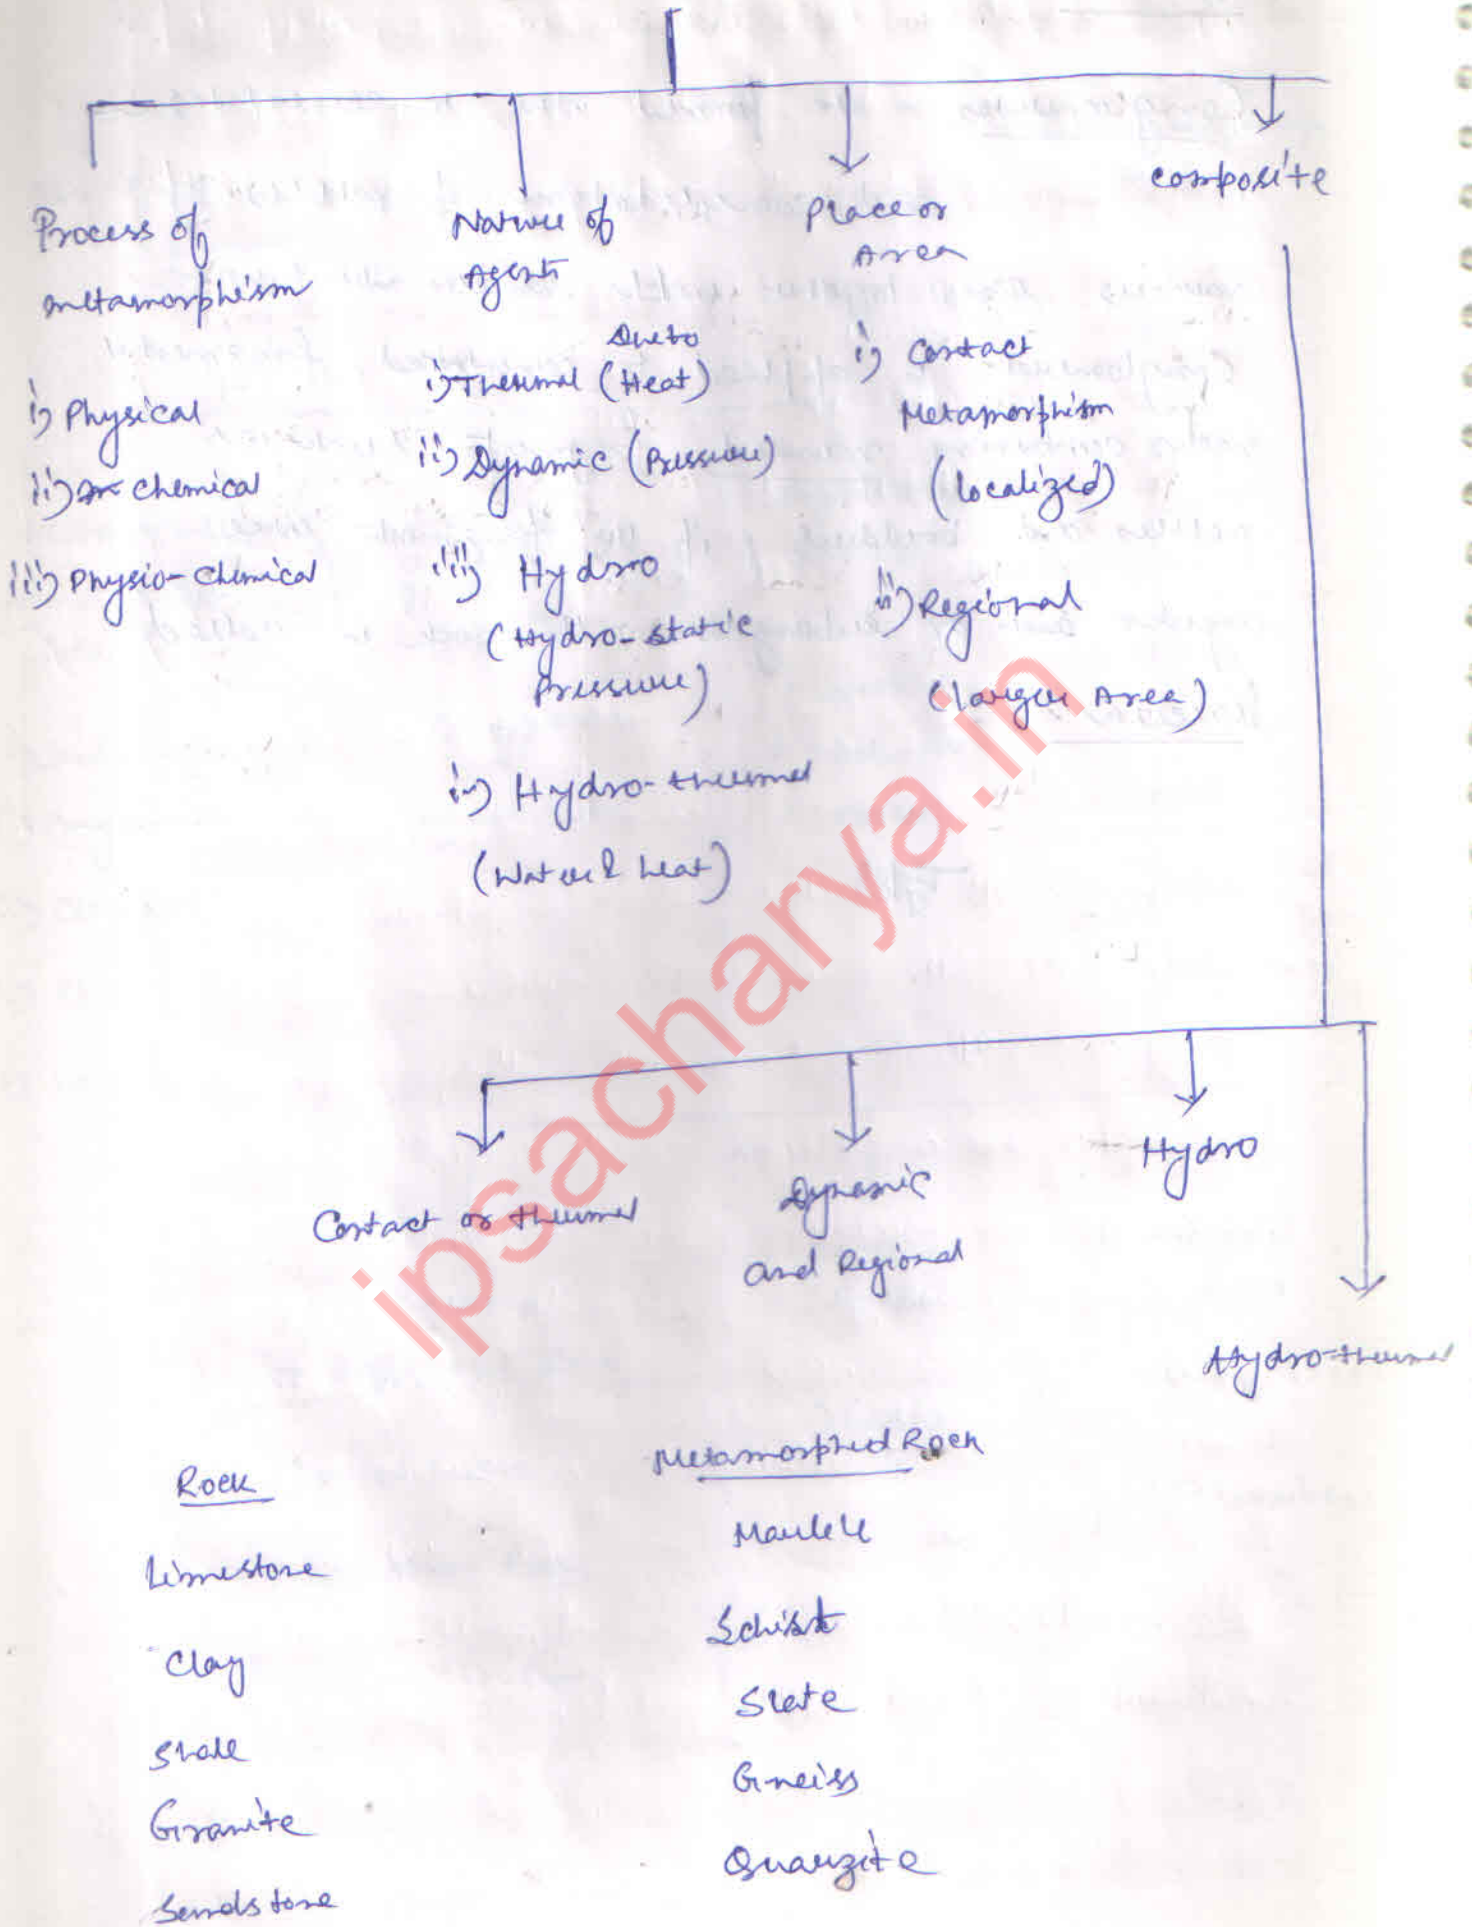 Process of
metamorphism
i) Physical
ii) chemical
iii) Physio-chemical
Nature of
Agent
Due to
i) Thermal (Heat)
ii) Dynamic (Pressure)
iii) Hydro
(Hydro-static
Pressure)
iv) Hydro-thermal
(Water & heat)
Place or
Area
i) Contact
Metamorphism
(localized)
ii) Regional
(larger Area)
composite
Contact or thermal
Dynamic
and Regional
Hydro
Hydro-thermal
Rock
Metamorphed Rock
Limestone
Marble
Clay
Schist
Shale
Slate
Granite
Gneiss
Sandstone
Quarzite
ipsacharya.in